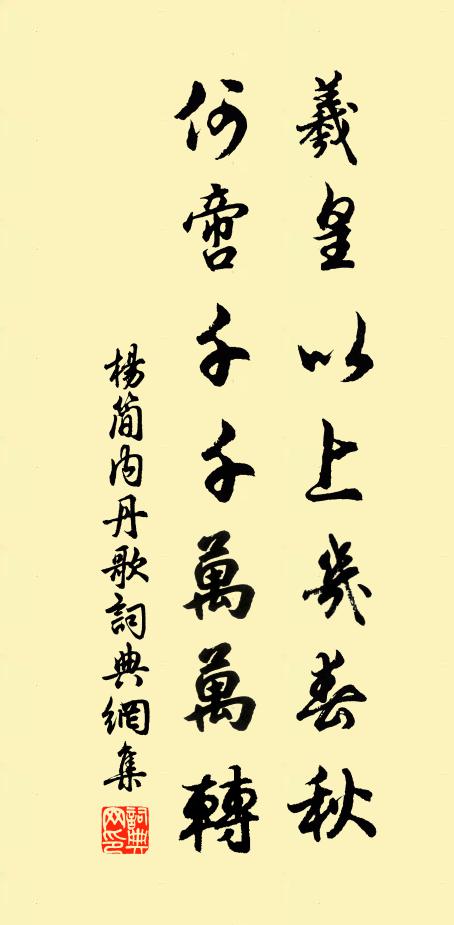 羲皇以上幾春秋
何啻千千萬萬轉
楊簡内丹歌詞典網集
詞典网印